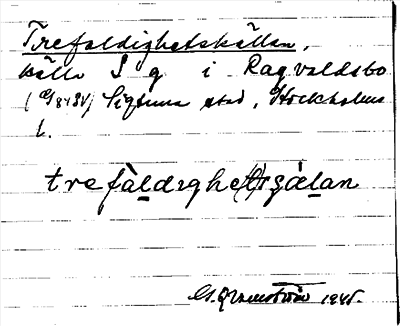 Trefaldighetskällan,
källa S g i Ragvaldsbo
Sigtuna stad, Stockholms
l.
trefàldighe(t)sgálan
1945.